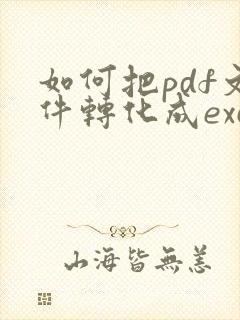 如何把pdf文
件轉化成exc
山海皆無恙